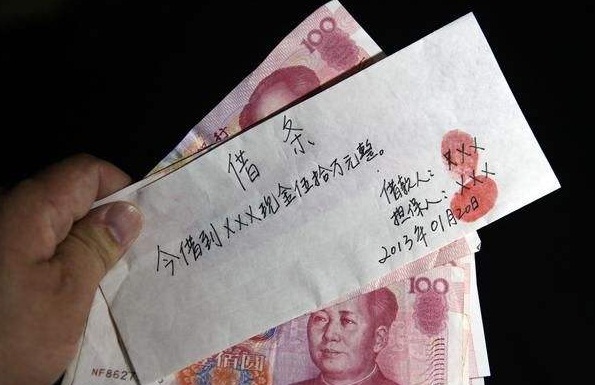 100
行
借条
今借到XXX现金伍拾万元整。
借款人：XXX
担保人：XXX
2013年01月20日
100
NF8627
佰圆